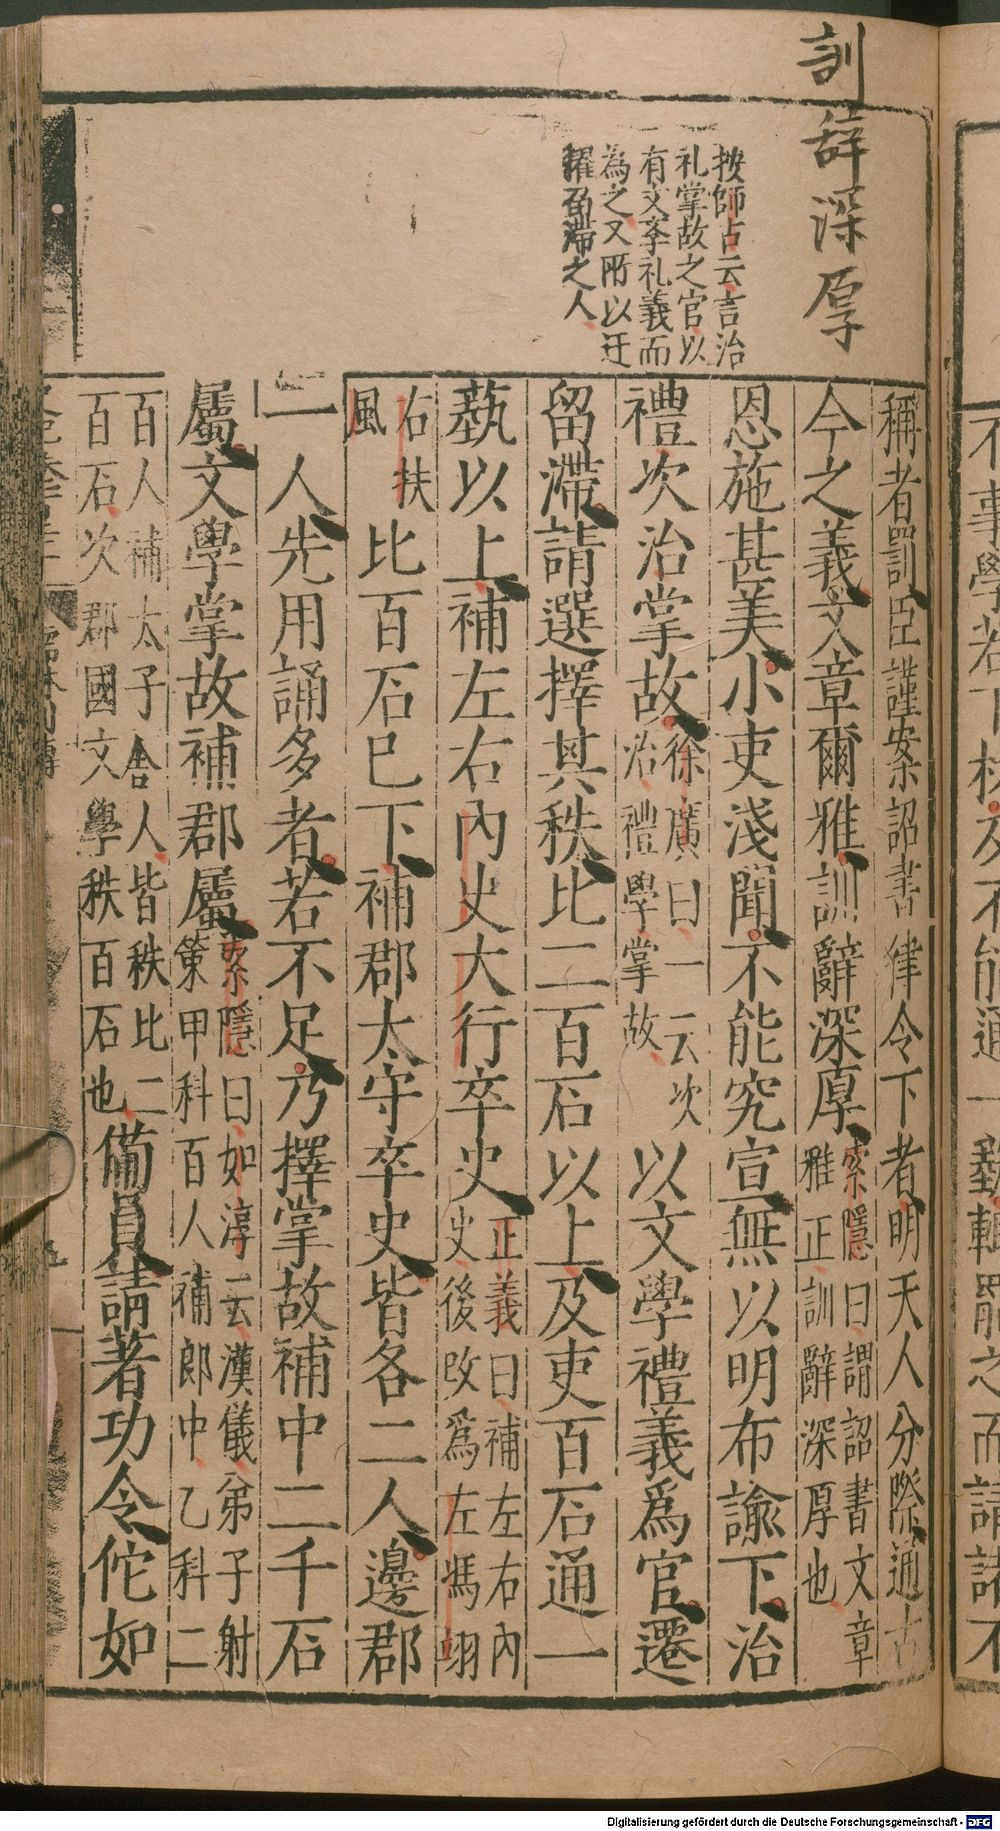 訓辭深厚
按師古云言治
礼掌故之官以
有文李礼義而
為之又所以迁
擢留滯之人
稱者罰臣謹案詔書律令下者明天人分際通古
今之義文章爾雅訓辭深厚
索隱曰謂詔書文章
雅正訓辭深厚也
恩施甚美小吏淺聞不能究宣無以明布諭下治
禮次治掌故
徐廣曰一云次
治禮學掌故
以文學禮義爲官遷
留滯請選擇其秩比二百石以上及吏百石通一
藝以上補左右內史大行卒史
正義曰補左右內
史後改爲左馮翊
右扶
風
比百石巳下補郡太守卒史皆各二人邊郡
一人先用誦多者若不足乃擇掌故補中二千石
屬文學掌故補郡屬
索隱曰如淳云漢儀弟子射
策甲科百人補郎中乙科二
百人補太子舎人皆秩比二
百石次郡國文學秩百石也
備員請著功令佗如
Digitalisierung gefördert durch die Deutsche Forschungsgemeinschaft - DFG